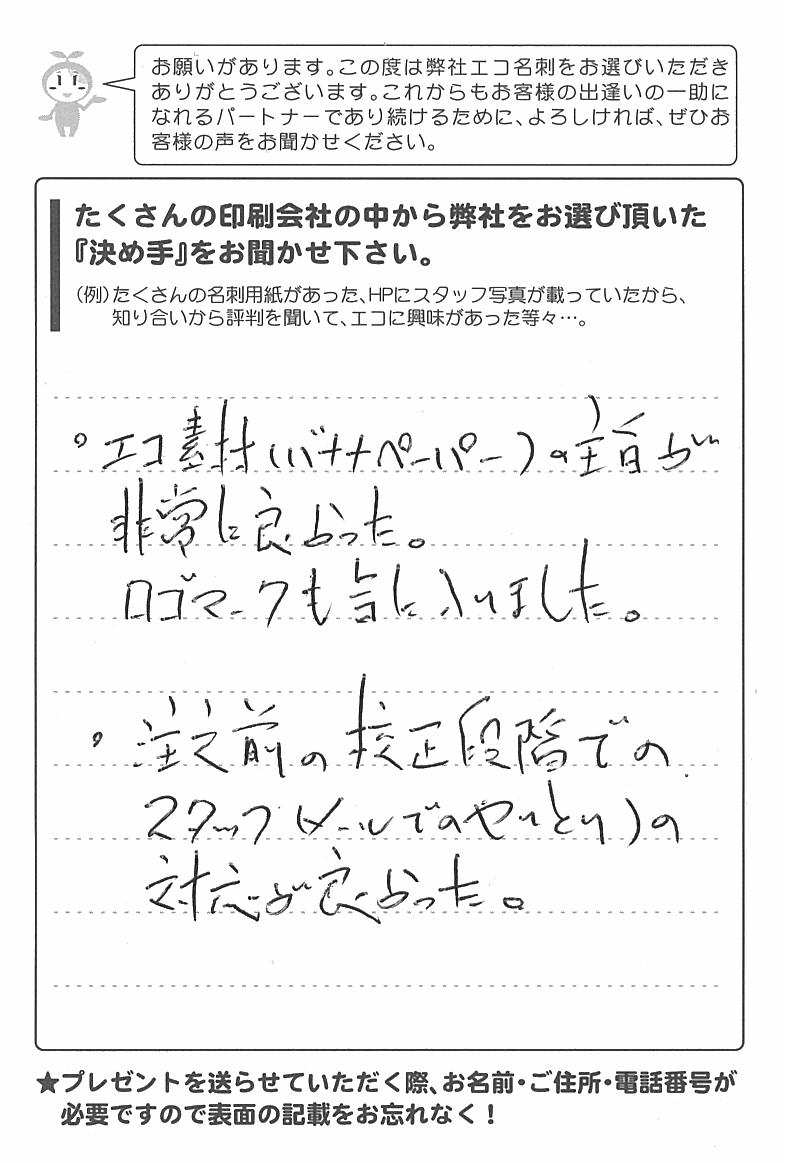 お願いがあります。この度は弊社エコ名刺をお選びいただき
ありがとうございます。これからもお客様の出逢いの一助に
なれるパートナーであり続けるために、よろしければ、ぜひお
客様の声をお聞かせください。
たくさんの印刷会社の中から弊社をお選び頂いた
『決め手』をお聞かせ下さい。
(例)たくさんの名刺用紙があった、HPにスタッフ写真が載っていたから、
知り合いから評判を聞いて、エコに興味があった等々…。
。エコ素材(バナナペーパー)の主旨が
非常に良かった。
ロゴマークも気に入りました。
。注文前の校正段階での
スタッフ(メールでのやりとり)の
対応が良かった。
★プレゼントを送らせていただく際、お名前・ご住所・電話番号が
必要ですので表面の記載をお忘れなく!